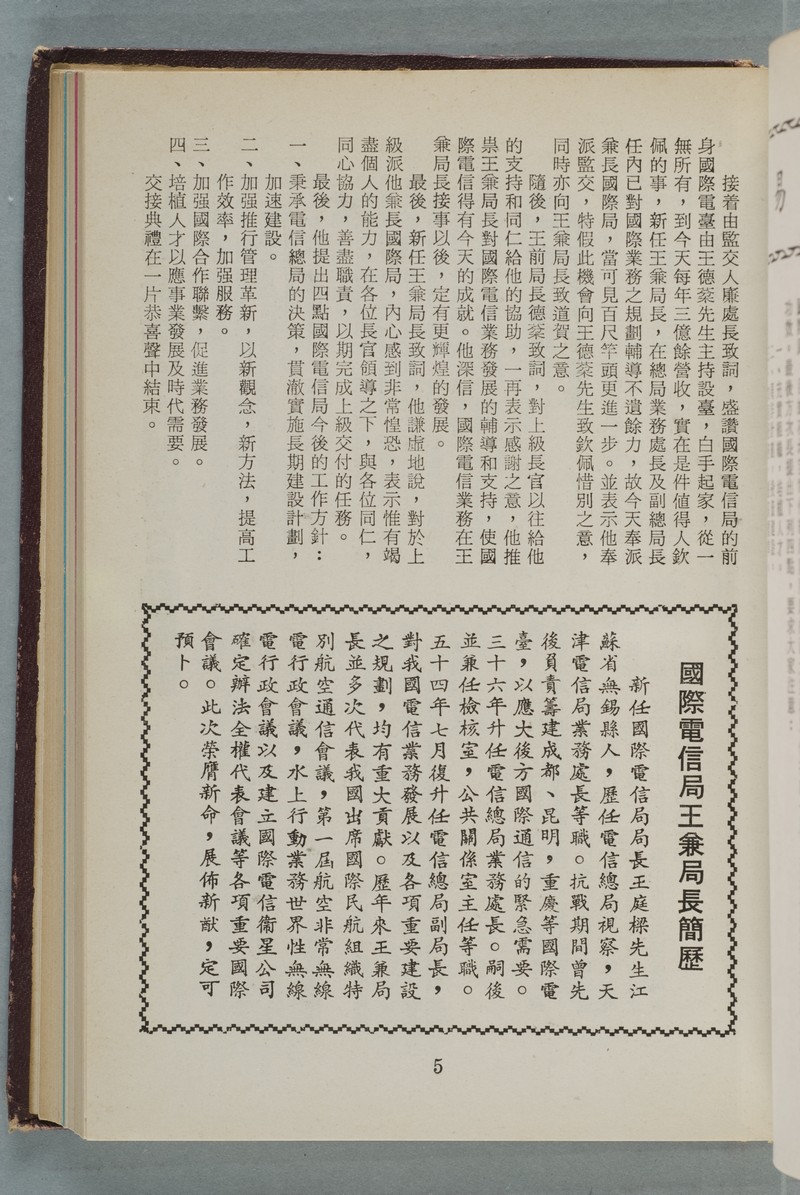 接着由監交人廉處長致詞，盛讚國際電信局的前
身國際電臺由王德棻先生主持設臺，白手起家，從一
無所有，到今天每年三億餘營收，實在是件值得人欽
佩的事，新任王兼局長，在總局業務處長及副總局長
任內已對國際業務之規劃輔導不遺餘力，故今天奉派
兼長國際局，當可見百尺竿頭更進一步。並表示他奉
派監交，特假此機會向王德棻先生致欽佩惜別之意，
同時亦向王兼局長致道賀之意。
隨後，王前局長德棻致詞，對上級長官以往給他
的支持和同仁給他的協助，一再表示感謝之意，他推
崇王兼局長對國際電信業務發展的輔導和支持，使國
際電信得有今天的成就。他深信，國際電信業務在王
兼局長接事以後，定有更輝煌的發展。
最後，新任王兼局長致詞，他謙虛地說，對於上
級派他兼長國際局，內心感到非常惶恐，表示惟有竭
盡個人的能力，在各位長官領導之下，與各位同仁，
同心協力，善盡職責，以期完成上級交付的任務。
最後，他提出四點國際電信局今後的工作方針：
一、秉承電信總局的決策，貫澈實施長期建設計劃，
加速建設。
二、加强推行管理革新，以新觀念，新方法，提高工
作效率，加强服務。
三、加强國際合作聯繫，促進業務發展。
四、培植人才以應事業發展及時代需要。
交接典禮在一片恭喜聲中結束。
國際電信局王兼局長簡歷
新任國際電信局局長王庭樑先生江
蘇省無錫縣人，歷任電信總局視察，天
津電信局業務處長等職。抗戰期間曾先
後負責籌建成都、昆明，重慶等國際電
臺，以應大後方國際通信的緊急需要。
三十六年升任電信總局業務處長。嗣後
並兼任檢核室，公共關係室主任等職。
五十四年七月復升任電信總局副局長，
對我國電信業務發展以及各項重要建設
之規劃，均有重大貢獻。歷年來王兼局
長並多次代表我國出席國際民航組織特
別航空通信會議，第一屆航空非常無線
電行政會議，水上行動業務世界性無線
電行政會議以及建立國際電信衞星公司
確定辦法全權代表會議等各項重要國際
會議。此次榮膺新命，展佈新猷，定可
預卜。
5